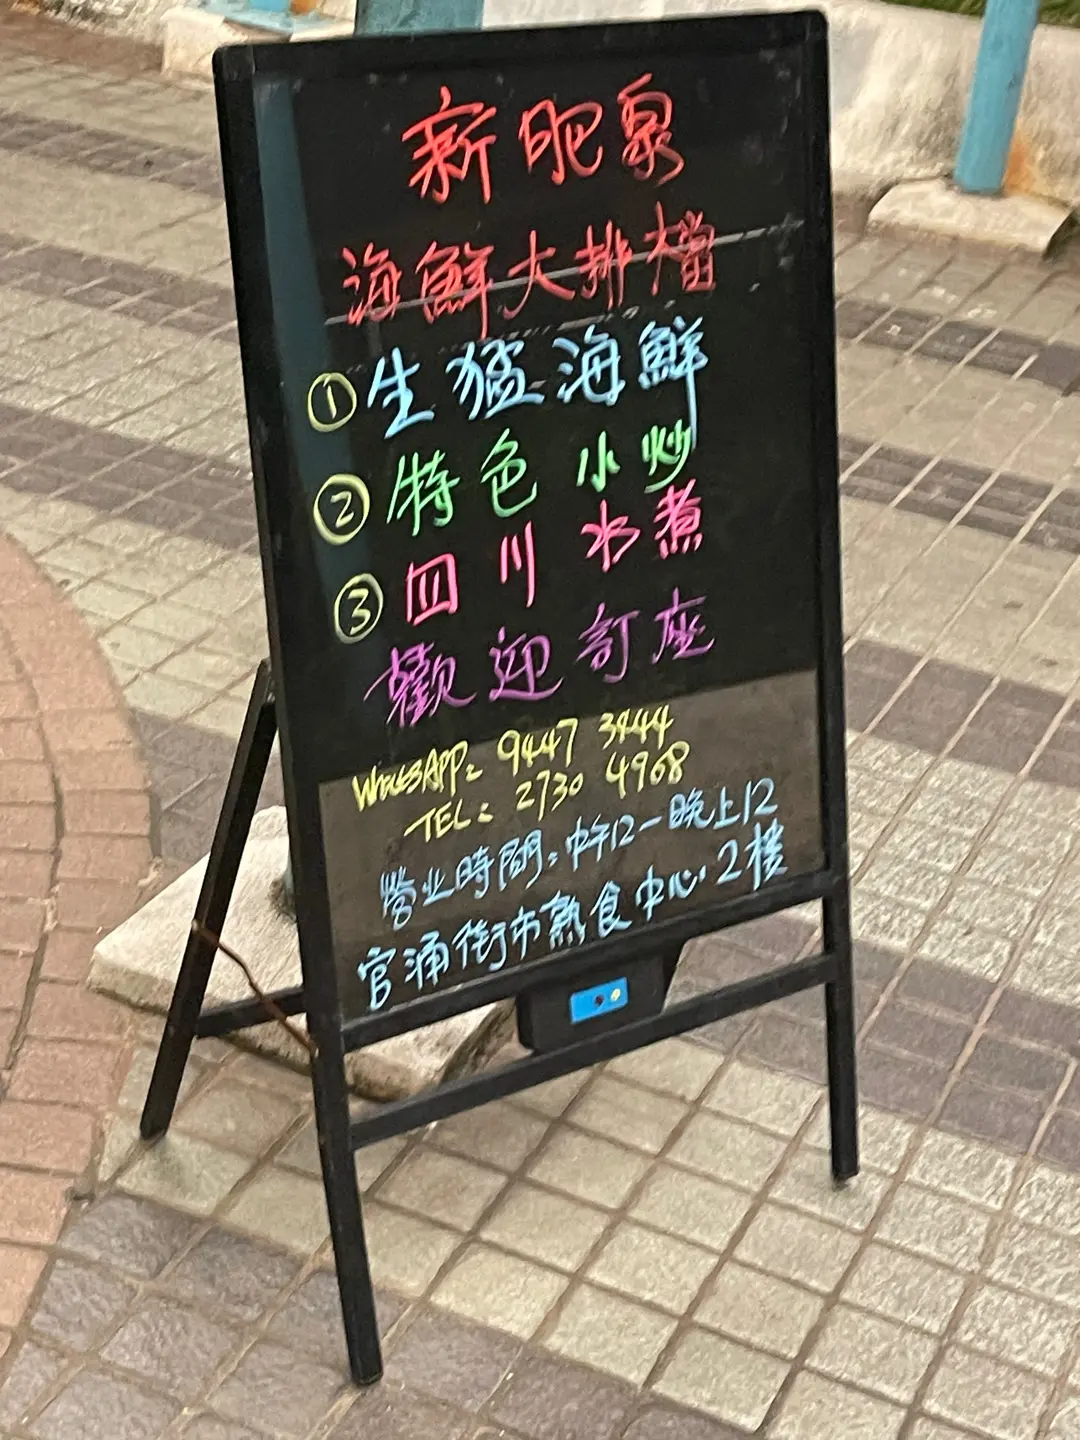 新肥泉
海鮮大排檔
① 生猛海鮮
② 特色小炒
③ 四川水煮
歡迎訂座
WHATSAPP: 9447 3444
TEL: 2730 4908
營业時間: 中午12-晚上12
官涌街市熟食中心2楼